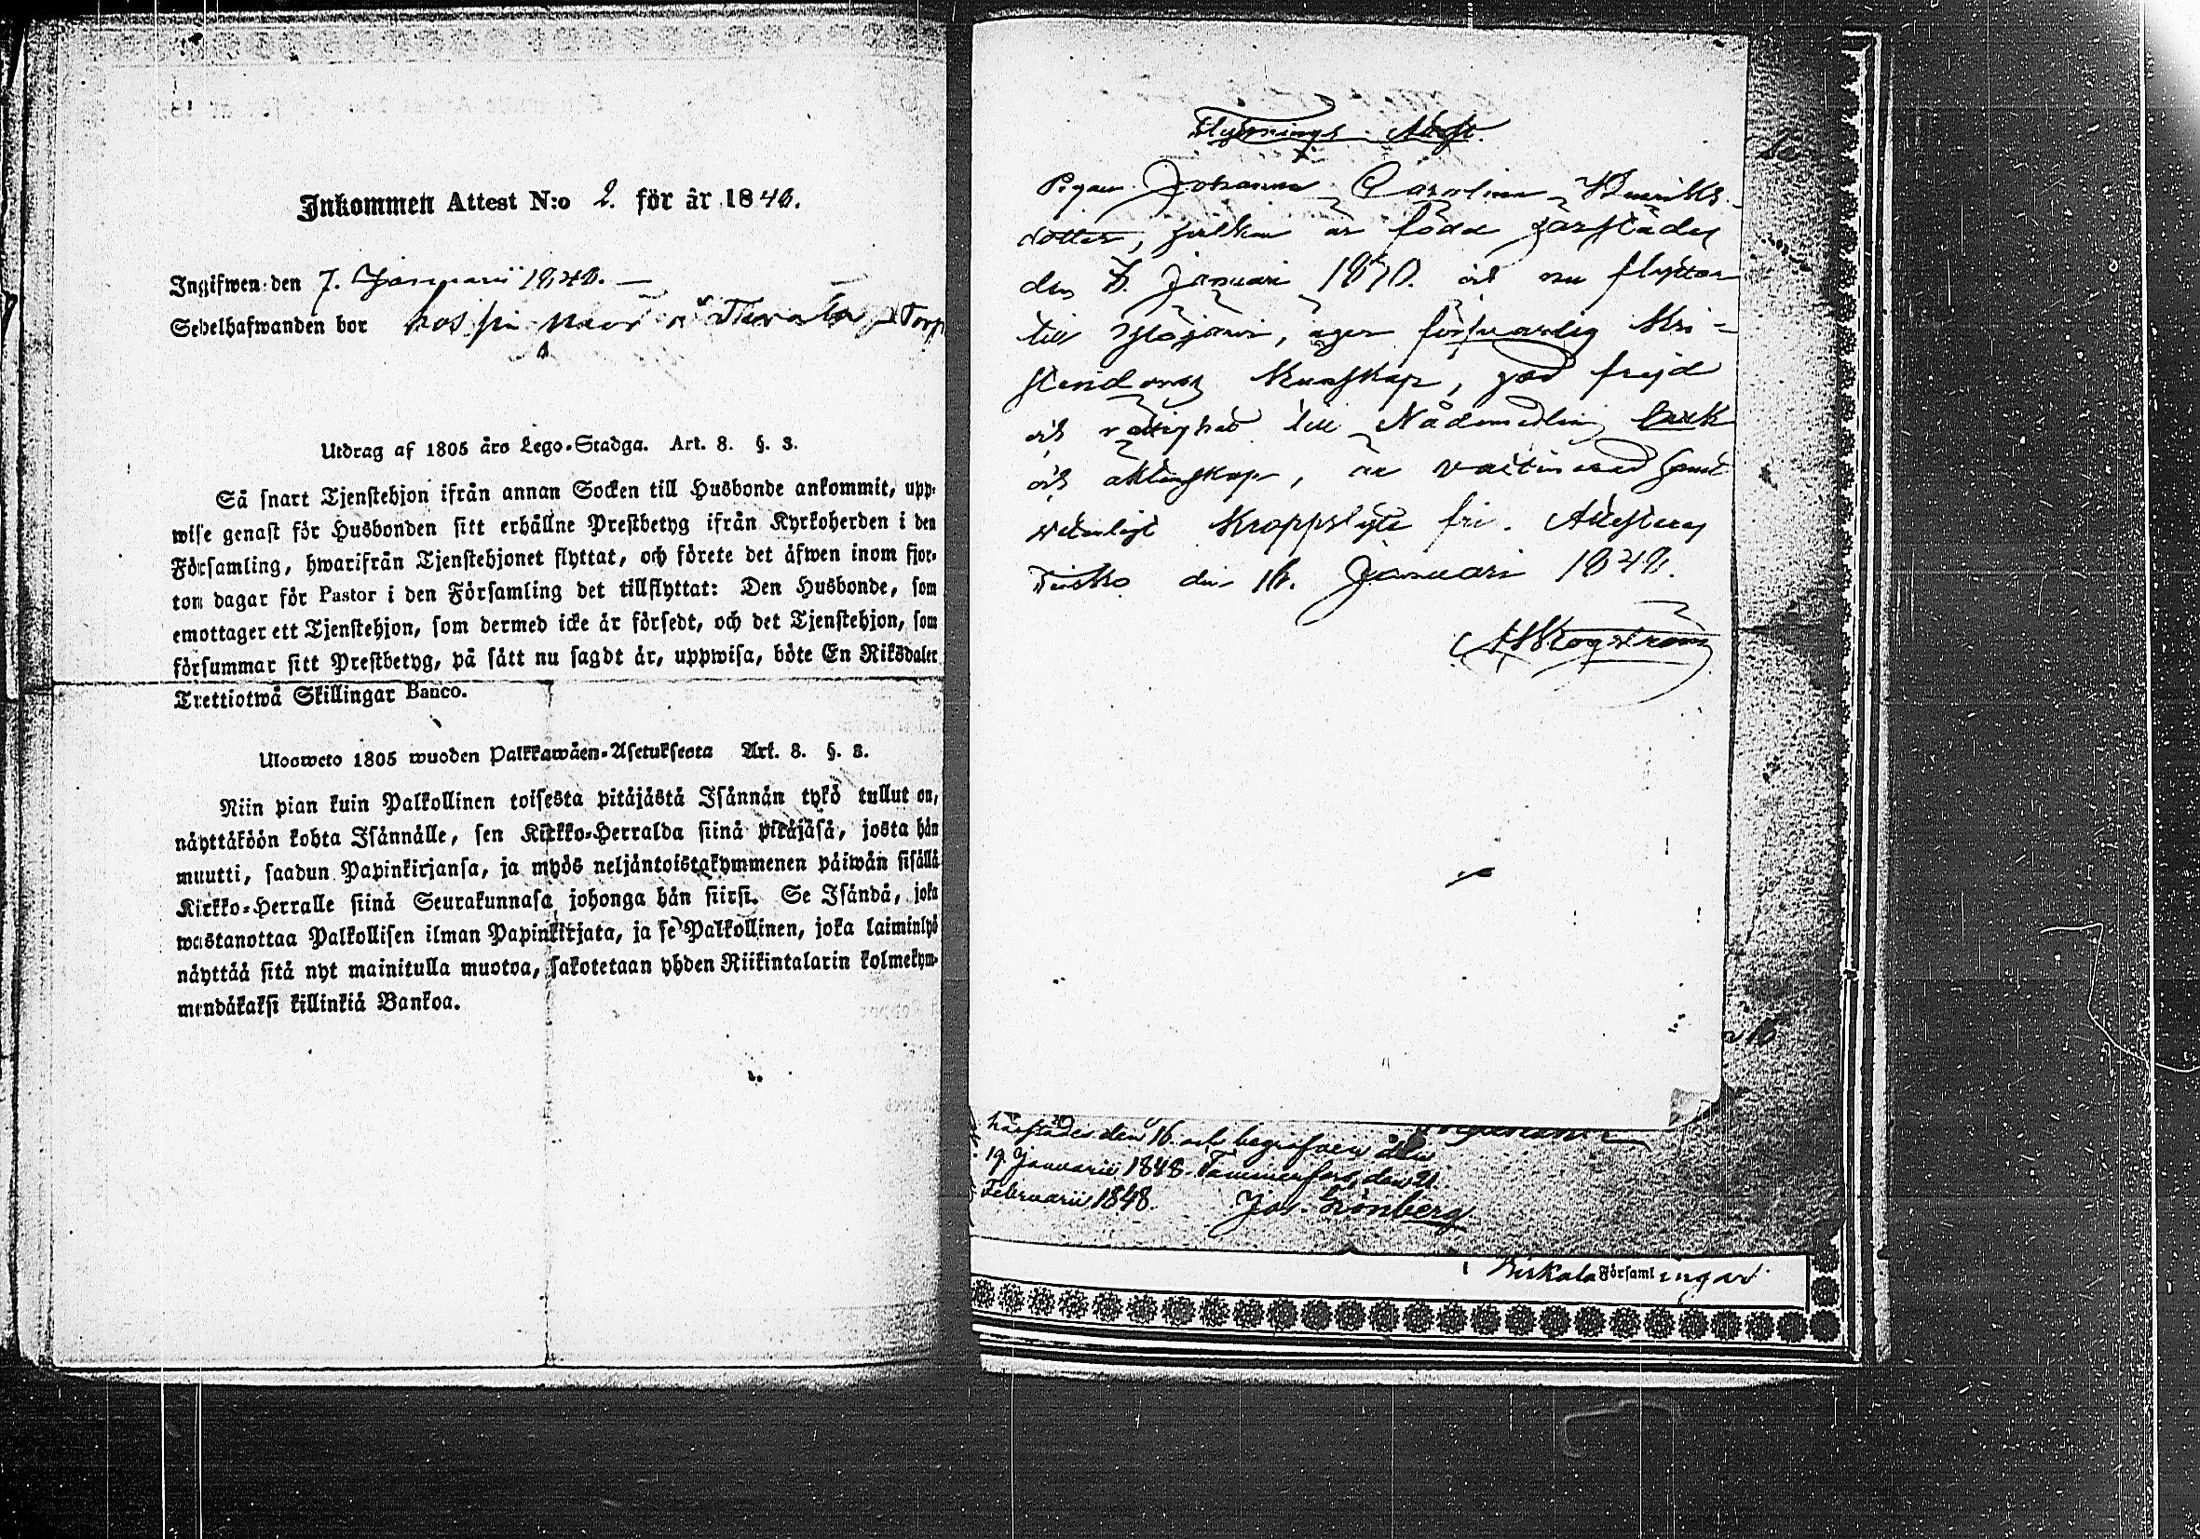 Inkommen Attest N:o 2. för år 1848.
Ingifwen den 7. Januarii 1848. —
Sedelhafwanden bor hos sin mor å Torp
Utdrag af 1805 års Lego-Stadga. Art. 8. §. 3.
Så snart Tjenstehjon ifrån annan Socken till Husbonde ankommit, upp-
wise genast för Husbonden sitt erhållne Prestbetyg ifrån Kyrkoherden i den
Församling, hwarifrån Tjenstehjonet flyttat, och förete det äfwen inom fjor-
ton dagar för Pastor i den Församling det tillflyttat: Den Husbonde, som
emottager ett Tjenstehjon, som dermed icke är försedt, och det Tjenstehjon, som
försummar sitt Prestbetyg, på sätt nu sagdt är, uppwisa, böte En Riksdaler
Trettiotwå Skillingar Banco.
Ulosweto 1805 wuoden Palkkawäen-Asetuksesta Art. 8. §. 3.
Niin pian kuin Palkollinen toisesta pitäjästä Isännän tykö tullut on,
näyttäköön kohta Isännälle, sen Kirkko-Herralda siinä pitäjäsä, josta hän
muutti, saadun Papinkirjansa, ja myös neljäntoistakymmenen päiwän sisällä
Kirkko-Herralle siinä Seurakunnasa johonga hän siirsi. Se Isändä, joka
wastanottaa Palkollisen ilman Papinkirjata, ja se Palkollinen, joka laiminlyö
näyttää sitä nyt mainitulla muotoa, sakotetaan yhden Riikintalarin kolmekym-
mendäkaksi killinkiä Bankoa.
Flyttnings Attest.
Pigan Johanna Carolina Henriks-
dotter, hvilken är född härstädes
den Januari och nu flyttar
till Ylöjärvi, äger försvarlig Kri-
stendoms Kunskap, god frejd
och rättighet till Nådemedlens bruk
och äktenskap, är vaccinerad samt
vetterligt Kroppslyte fri. Attesteras
den 16. Januari 1848.
A Skogström
härstädes den 16. och begrafven den
19. Januarii 1848. Tammerfors den 21.
Februarii 1848. Jos. Grönberg
Birkala Församlingar